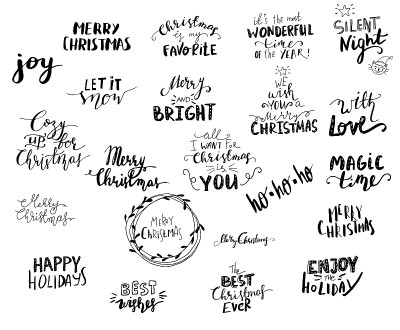 MERRY
CHRISTMAS
Christmas
is my
FAVORITE
it's the most
WONDERFUL
time
OF THE YEAR!
SILENT
Night
joy
LET IT
snow
Merry
AND
BRIGHT
WE
wish
YOU a
Merry
CHRISTMAS
with
LOVE
Cozy
up for
Christmas
Merry
Christmas
all
I WANT FOR
Christmas
is
YOU
ho•ho•ho
MAGIC
time
Merry
Christmas
MERRY
CHRISTMAS
Merry Christmas
MERRY
CHRISTMAS
HAPPY
HOLIDAYS
BEST
wishes
The
BEST
Christmas
EVER
ENJOY
THE
HOLIDAY